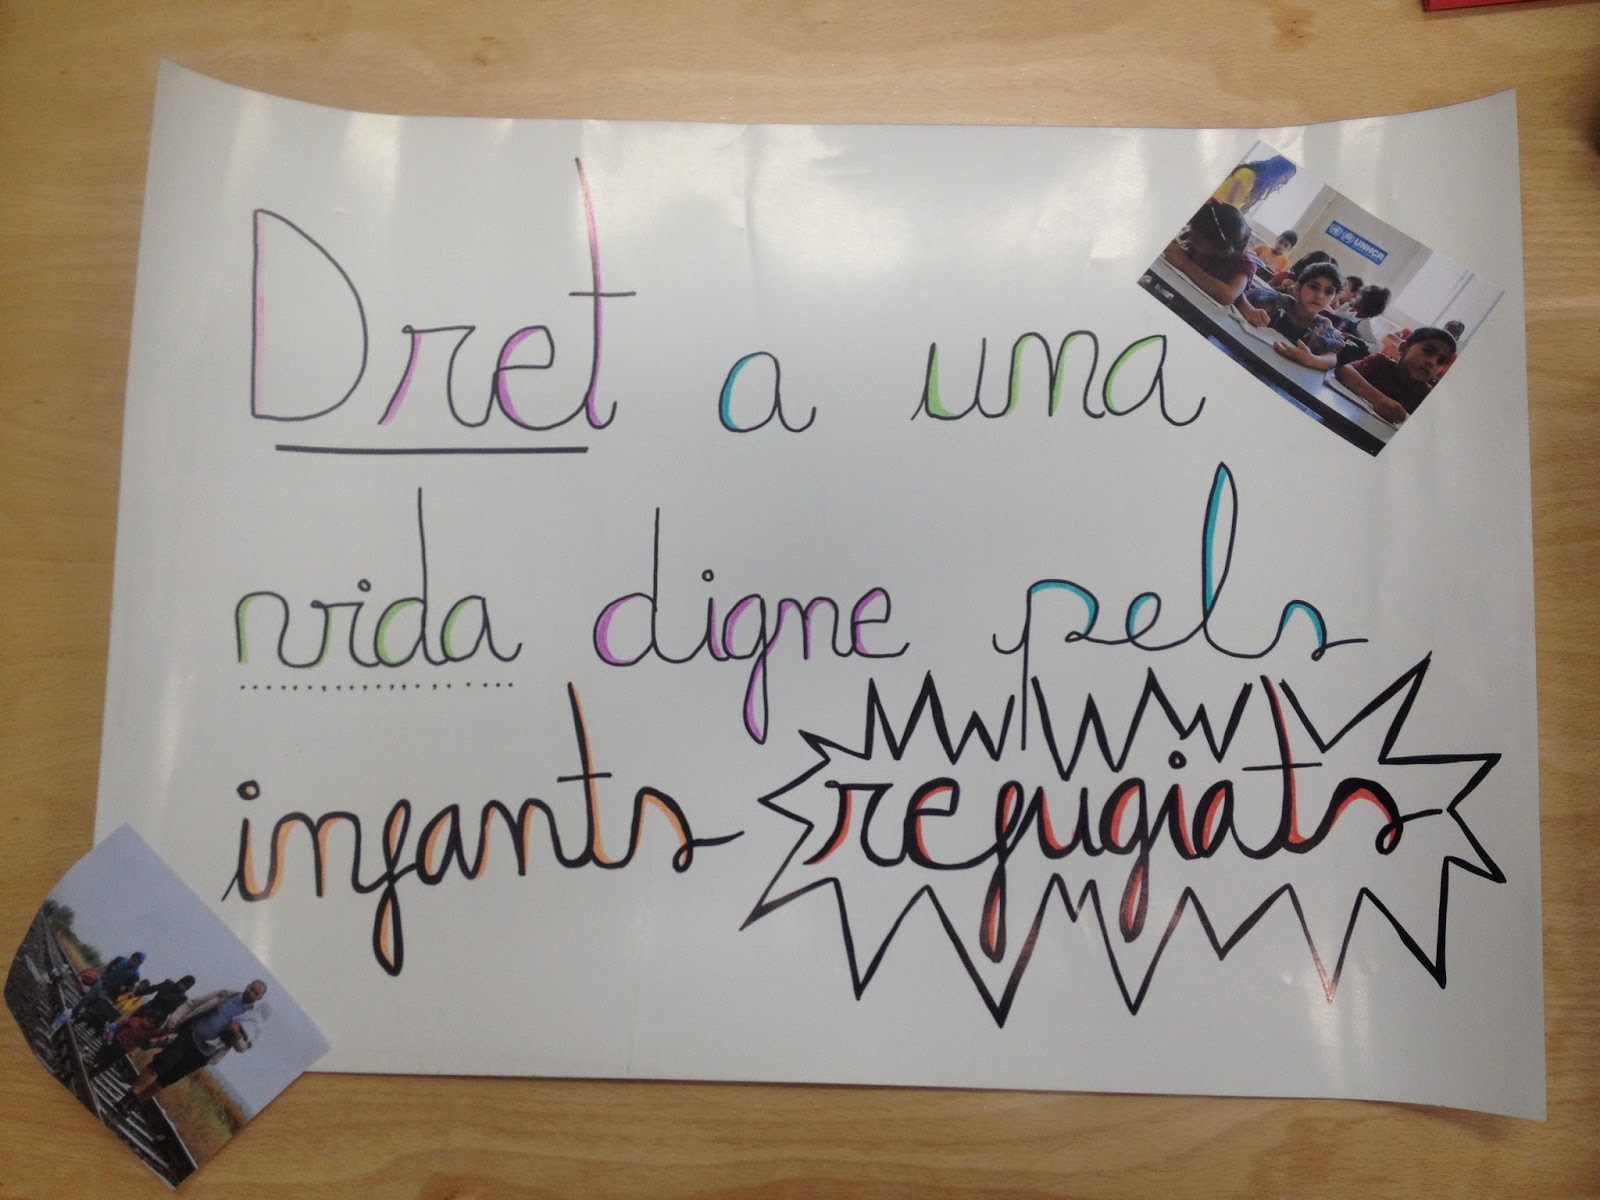 Dret a una
UNHCR
vida digne pels
infants refugiats